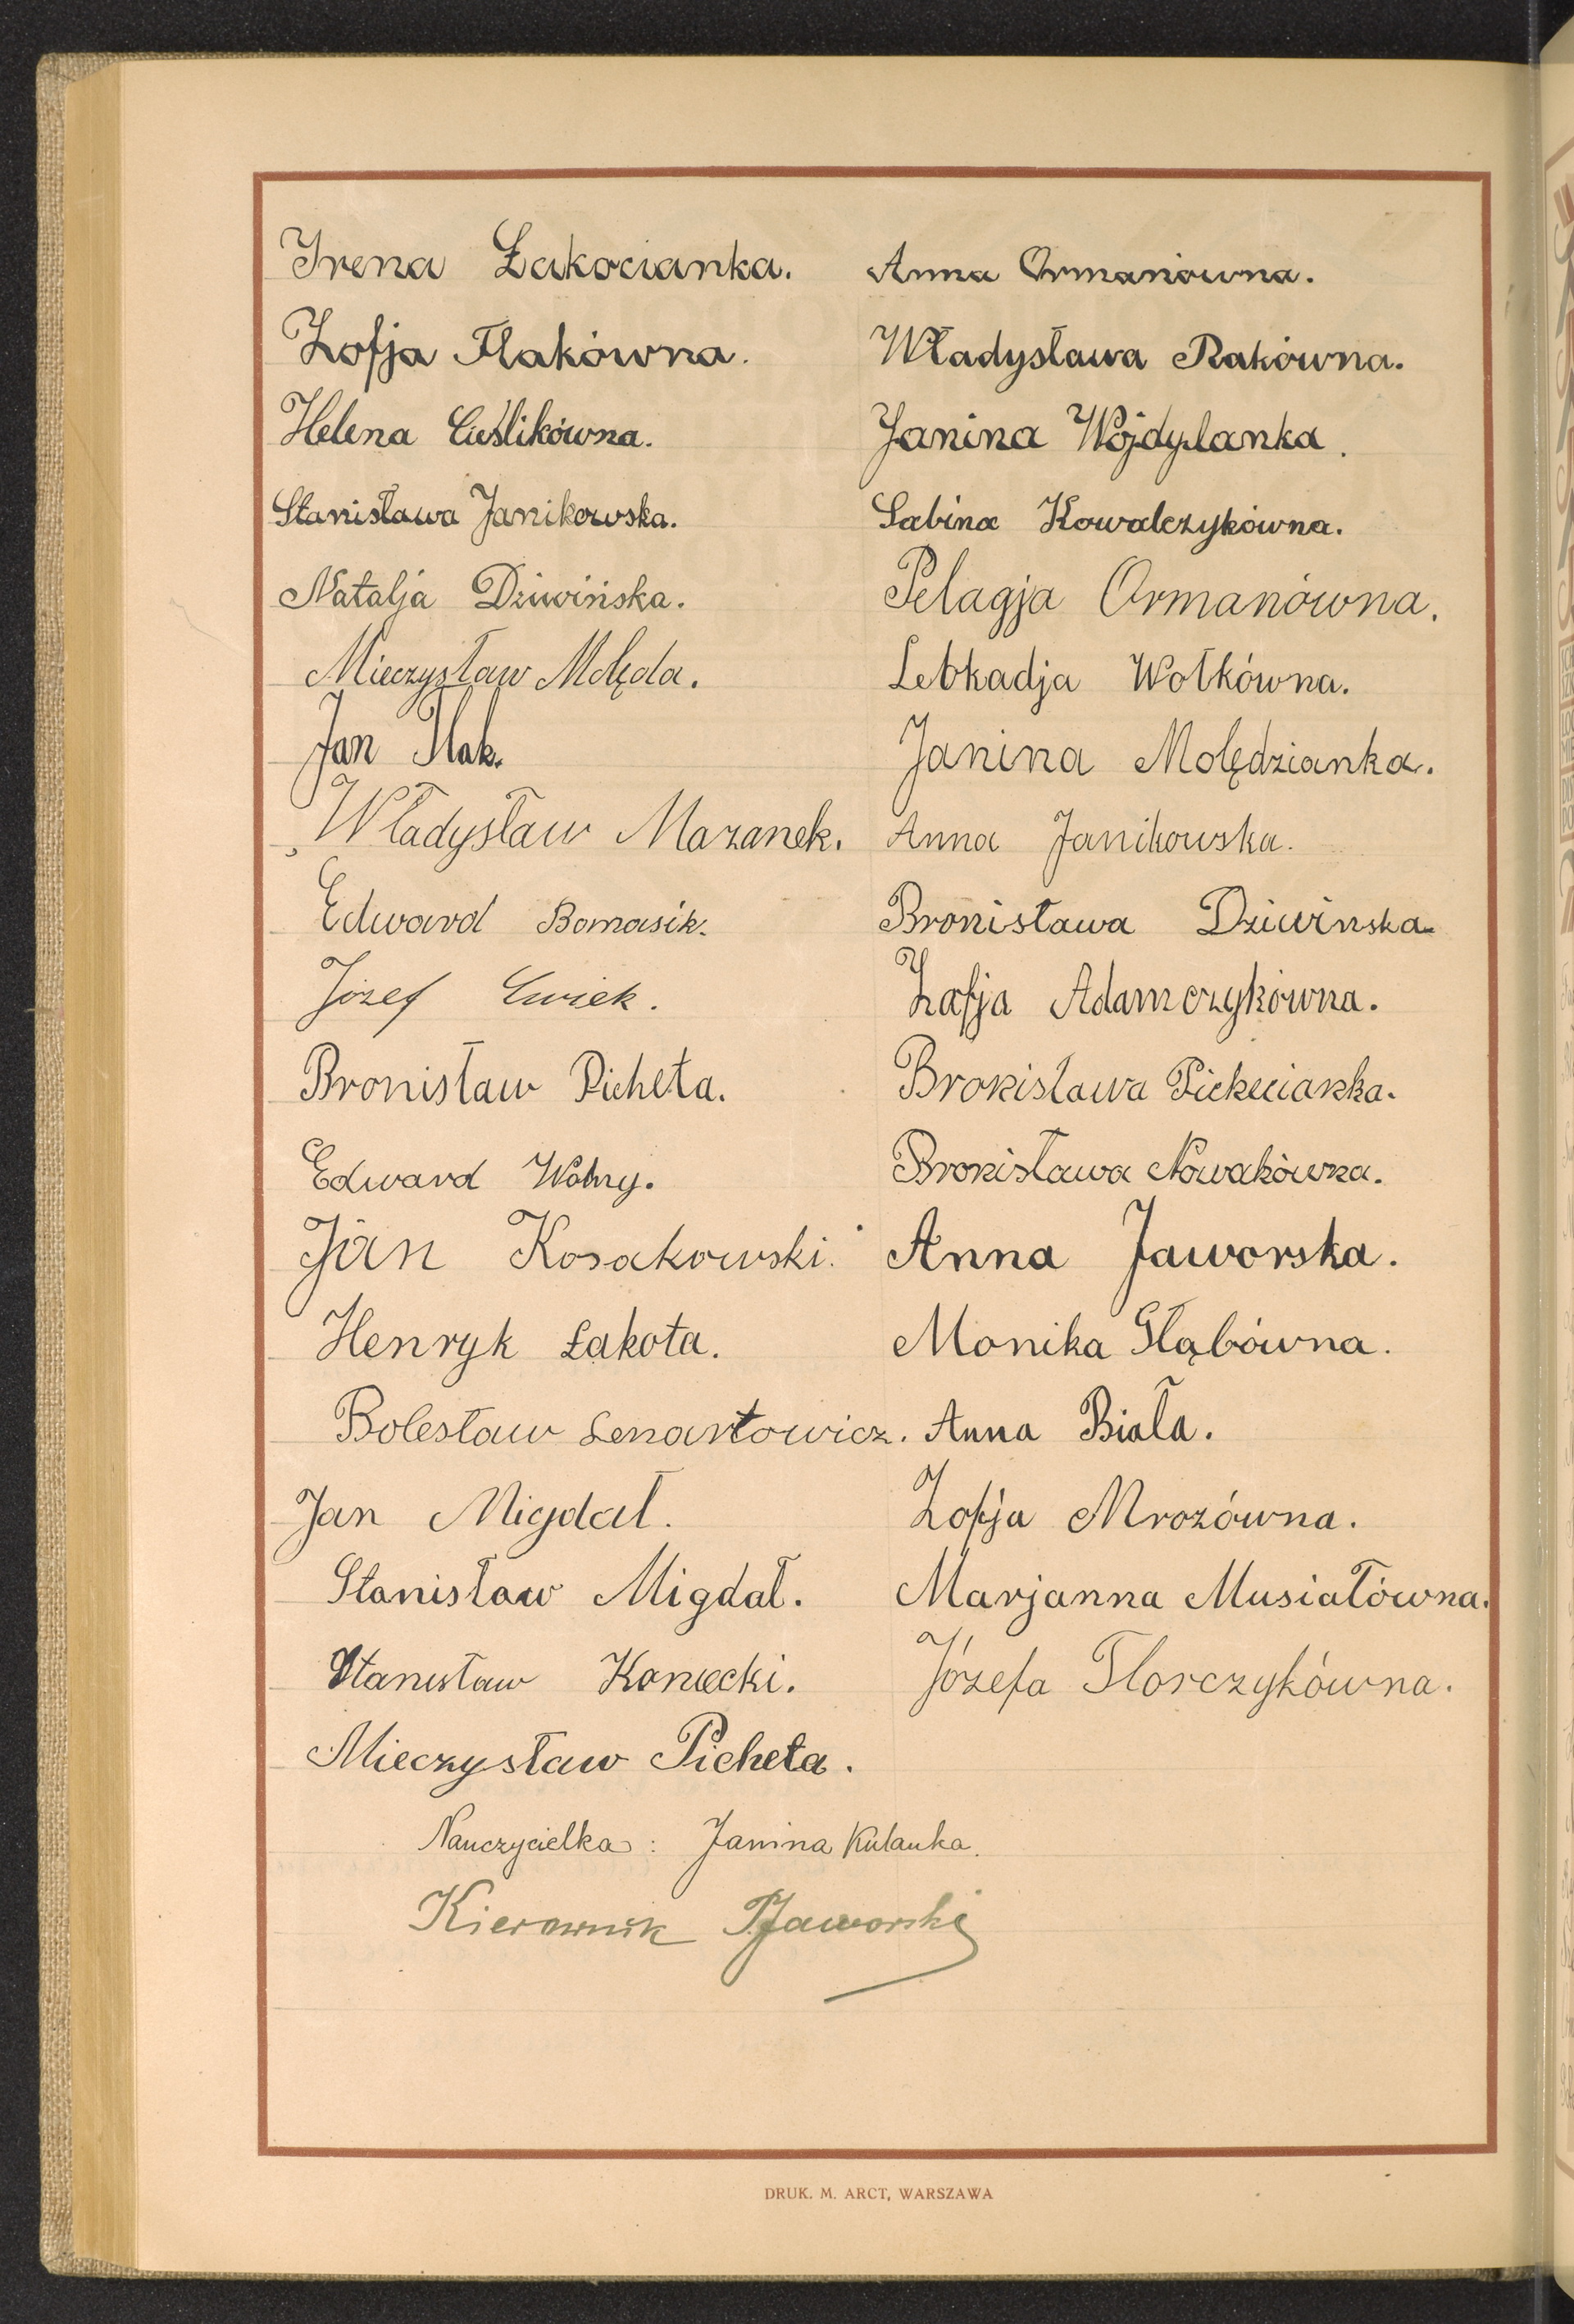 Irena Łakocianka.
Zofja Flakówna.
Helena Cieślikówna.
Stanisława Janikowska.
Natalja Dziwińska.
Mieczysław Molęda.
Jan Flak.
Władysław Mazanek.
Edward Bomasik.
Józef Ćwiek.
Bronisław Picheta.
Edward Wolny.
Jan Kosakowski.
Henryk Łakota.
Bolesław Lenartowicz.
Jan Migdał.
Stanisław Migdał.
Stanisław Koniecki.
Mieczysław Picheta.
Anna Ormanówna.
Władysława Rakówna.
Janina Wójdylanka.
Sabina Kowalczykówna.
Pelagja Ormanówna.
Leokadja Wołkówna.
Janina Molędzianka.
Anna Janikowska.
Bronisława Dziwinska.
Zofja Adamczykówna.
Bronisława Pichecianka.
Bronisława Nowakówna.
Anna Jaworska.
Monika Głąbówna.
Anna Biała.
Zofja Mrozówna.
Marjanna Musiałówna.
Józefa Florczykówna.
Nauczycielka: Janina Kulanka.
Kierownik Jaworski
DRUK. M. ARCT, WARSZAWA